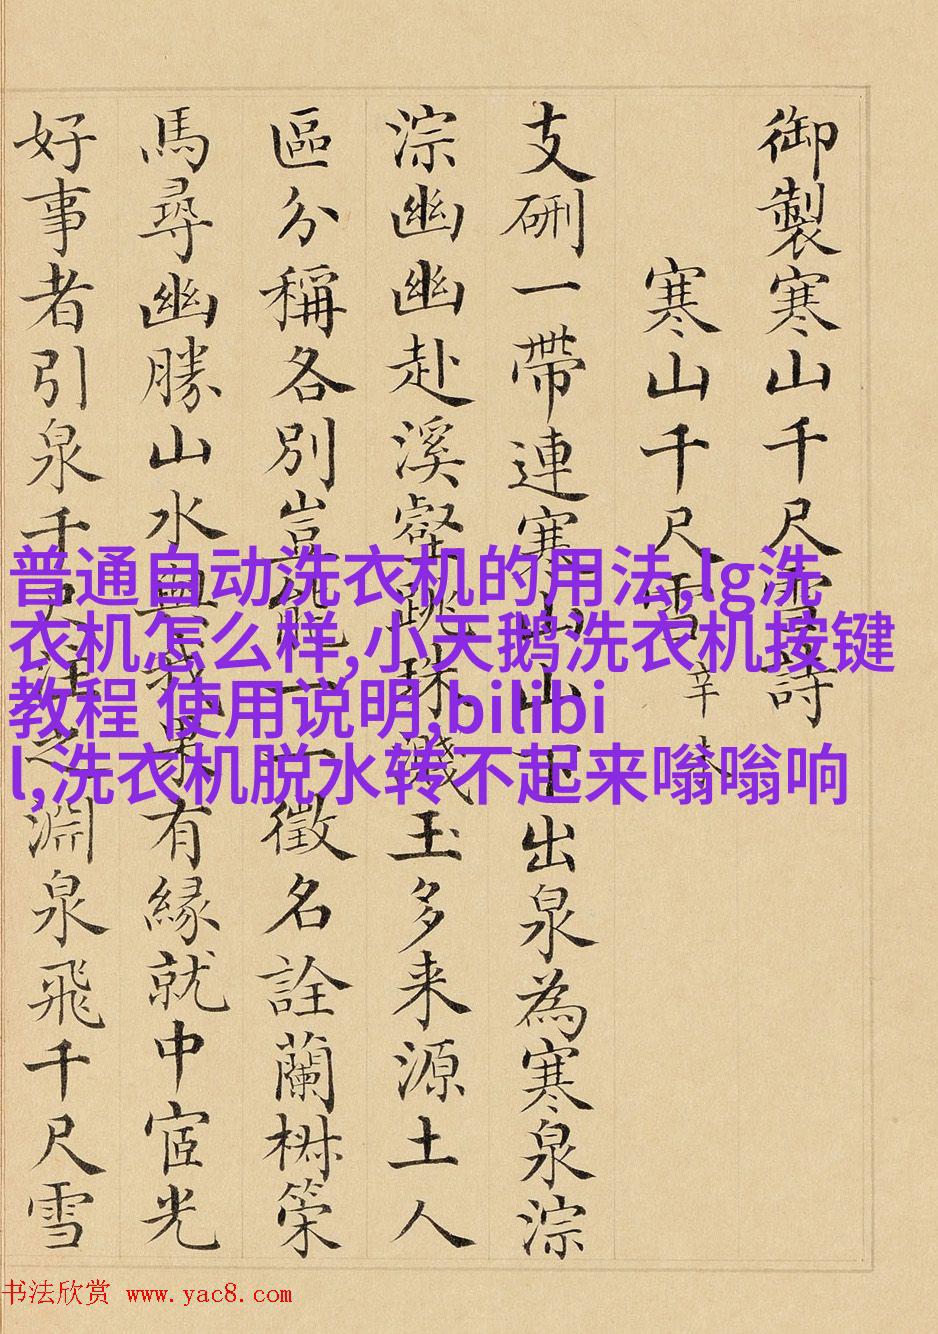 御製寒山千尺雪詩
寒山千尺雪 辛未
支硎一帶連寒山山下出泉為寒泉淙
淙幽幽赴溪壑跳珠濺玉多来源土人
區分稱各別豈能一一徵名詮蘭策
馬尋幽勝山水與我果有緣就中宧光
好事者引泉千尺注之淵泉飛千尺雪
普通自动洗衣机的用法,lg洗
衣机怎么样,小天鹅洗衣机按键
教程 使用说明,bilibi
l,洗衣机脱水转不起来嗡嗡响
书法欣赏 www.yac8.com